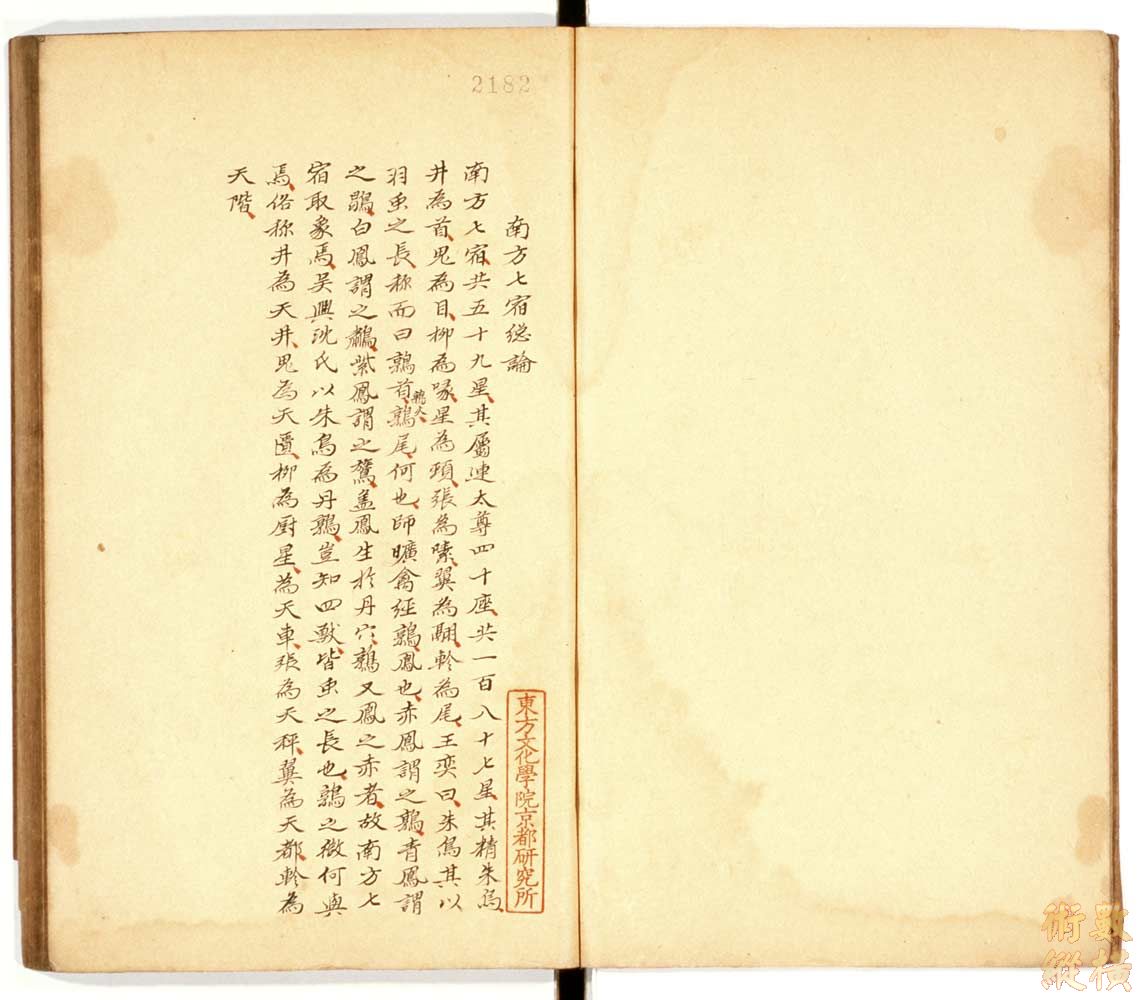 2182
南方七宿総論
南方七宿共五十九星其属連太尊四十座共一百八十七星其精朱鳥
井為首鬼為目柳為喙星為頸張為嗉翼為翮軫為尾王奕曰朱鳥其以
羽虫之長称而曰鶉首鶉火鶉尾何也師曠禽経鶉鳳也赤鳳謂之鶉青鳳謂
之鶡白鳳謂之鷫紫鳳謂之鷟盖鳳生於丹穴鶉又鳳之赤者故南方七
宿取象焉吴興沈氏以朱鳥為丹鶉豈知四獣皆虫之長也鶉之微何與
焉俗称井為天井鬼為天匱柳為厨星為天車張為天秤翼為天都軫為
天階
東方文化學院京都研究所
數橫
術縱